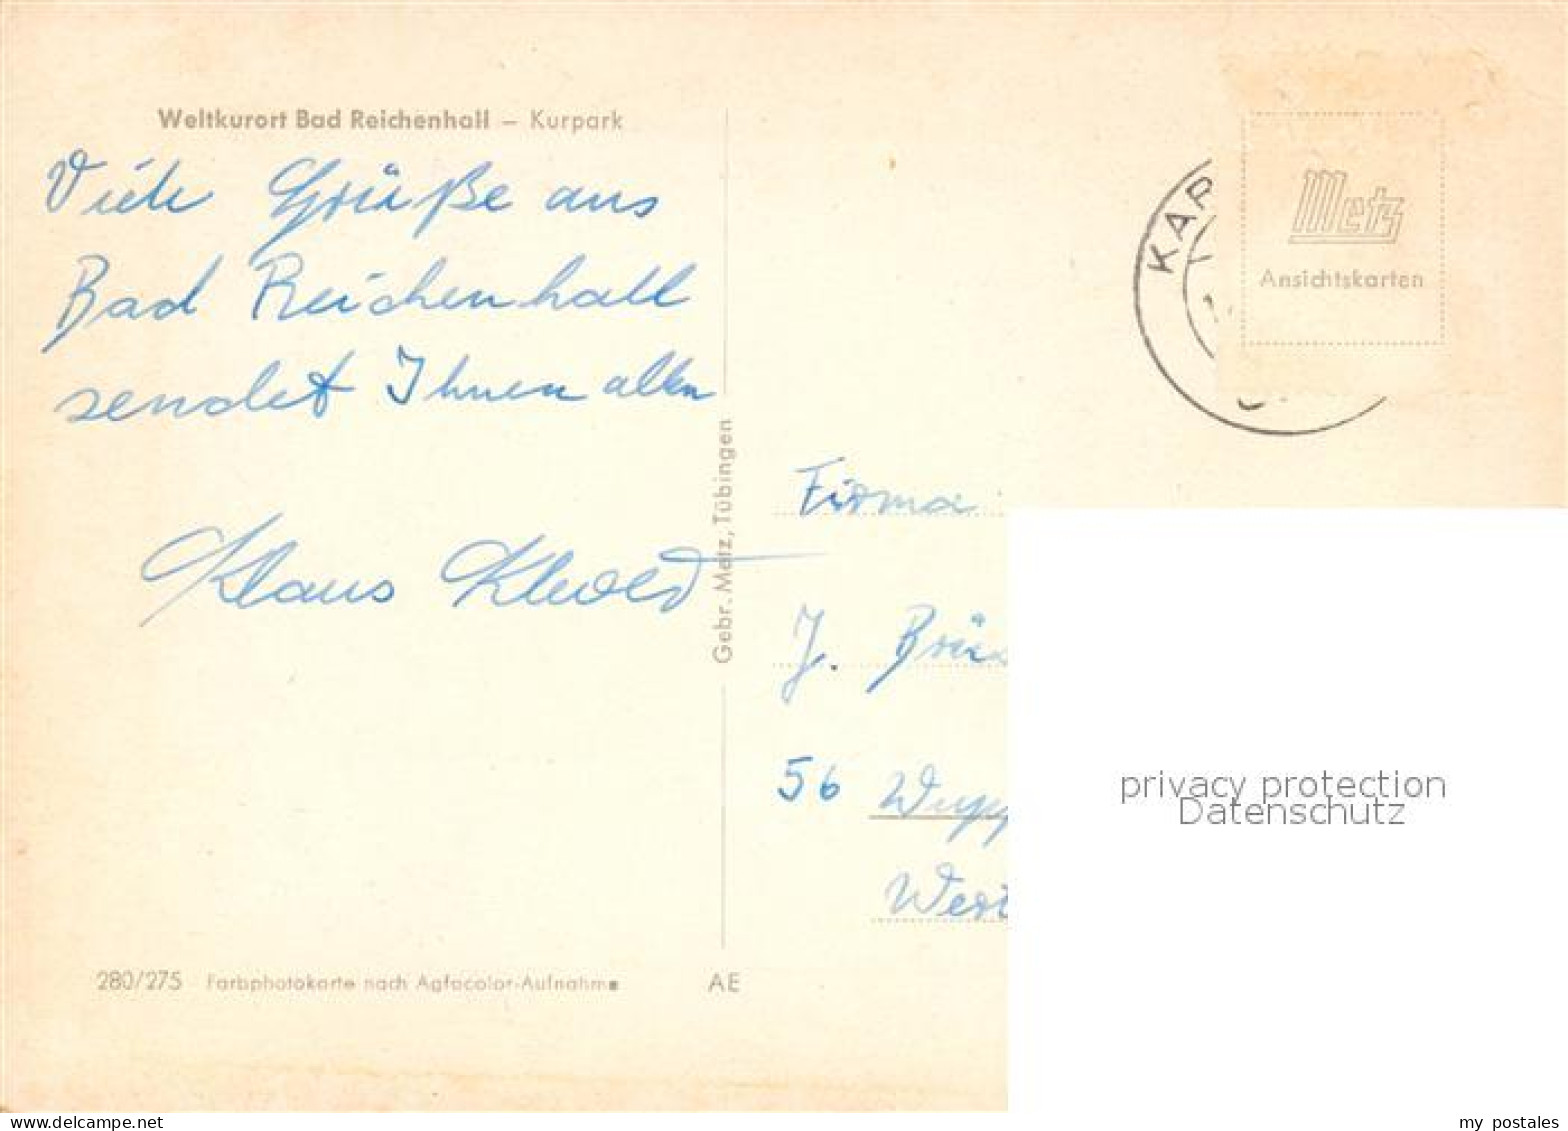 Weltkurort Bad Reichenhall – Kurpark
Viele Grüße aus
Bad Reichenhall
sendet Ihnen allen
Klaus
Gebr. Metz, Tübingen
280/275 Farbphotokarte nach Agfacolor-Aufnahme
AE
KAR
Metz
Ansichtskarten
Firma
J. Brü
56 Wupp
Wer
privacy protection
Datenschutz
www.delcampe.net
my postales